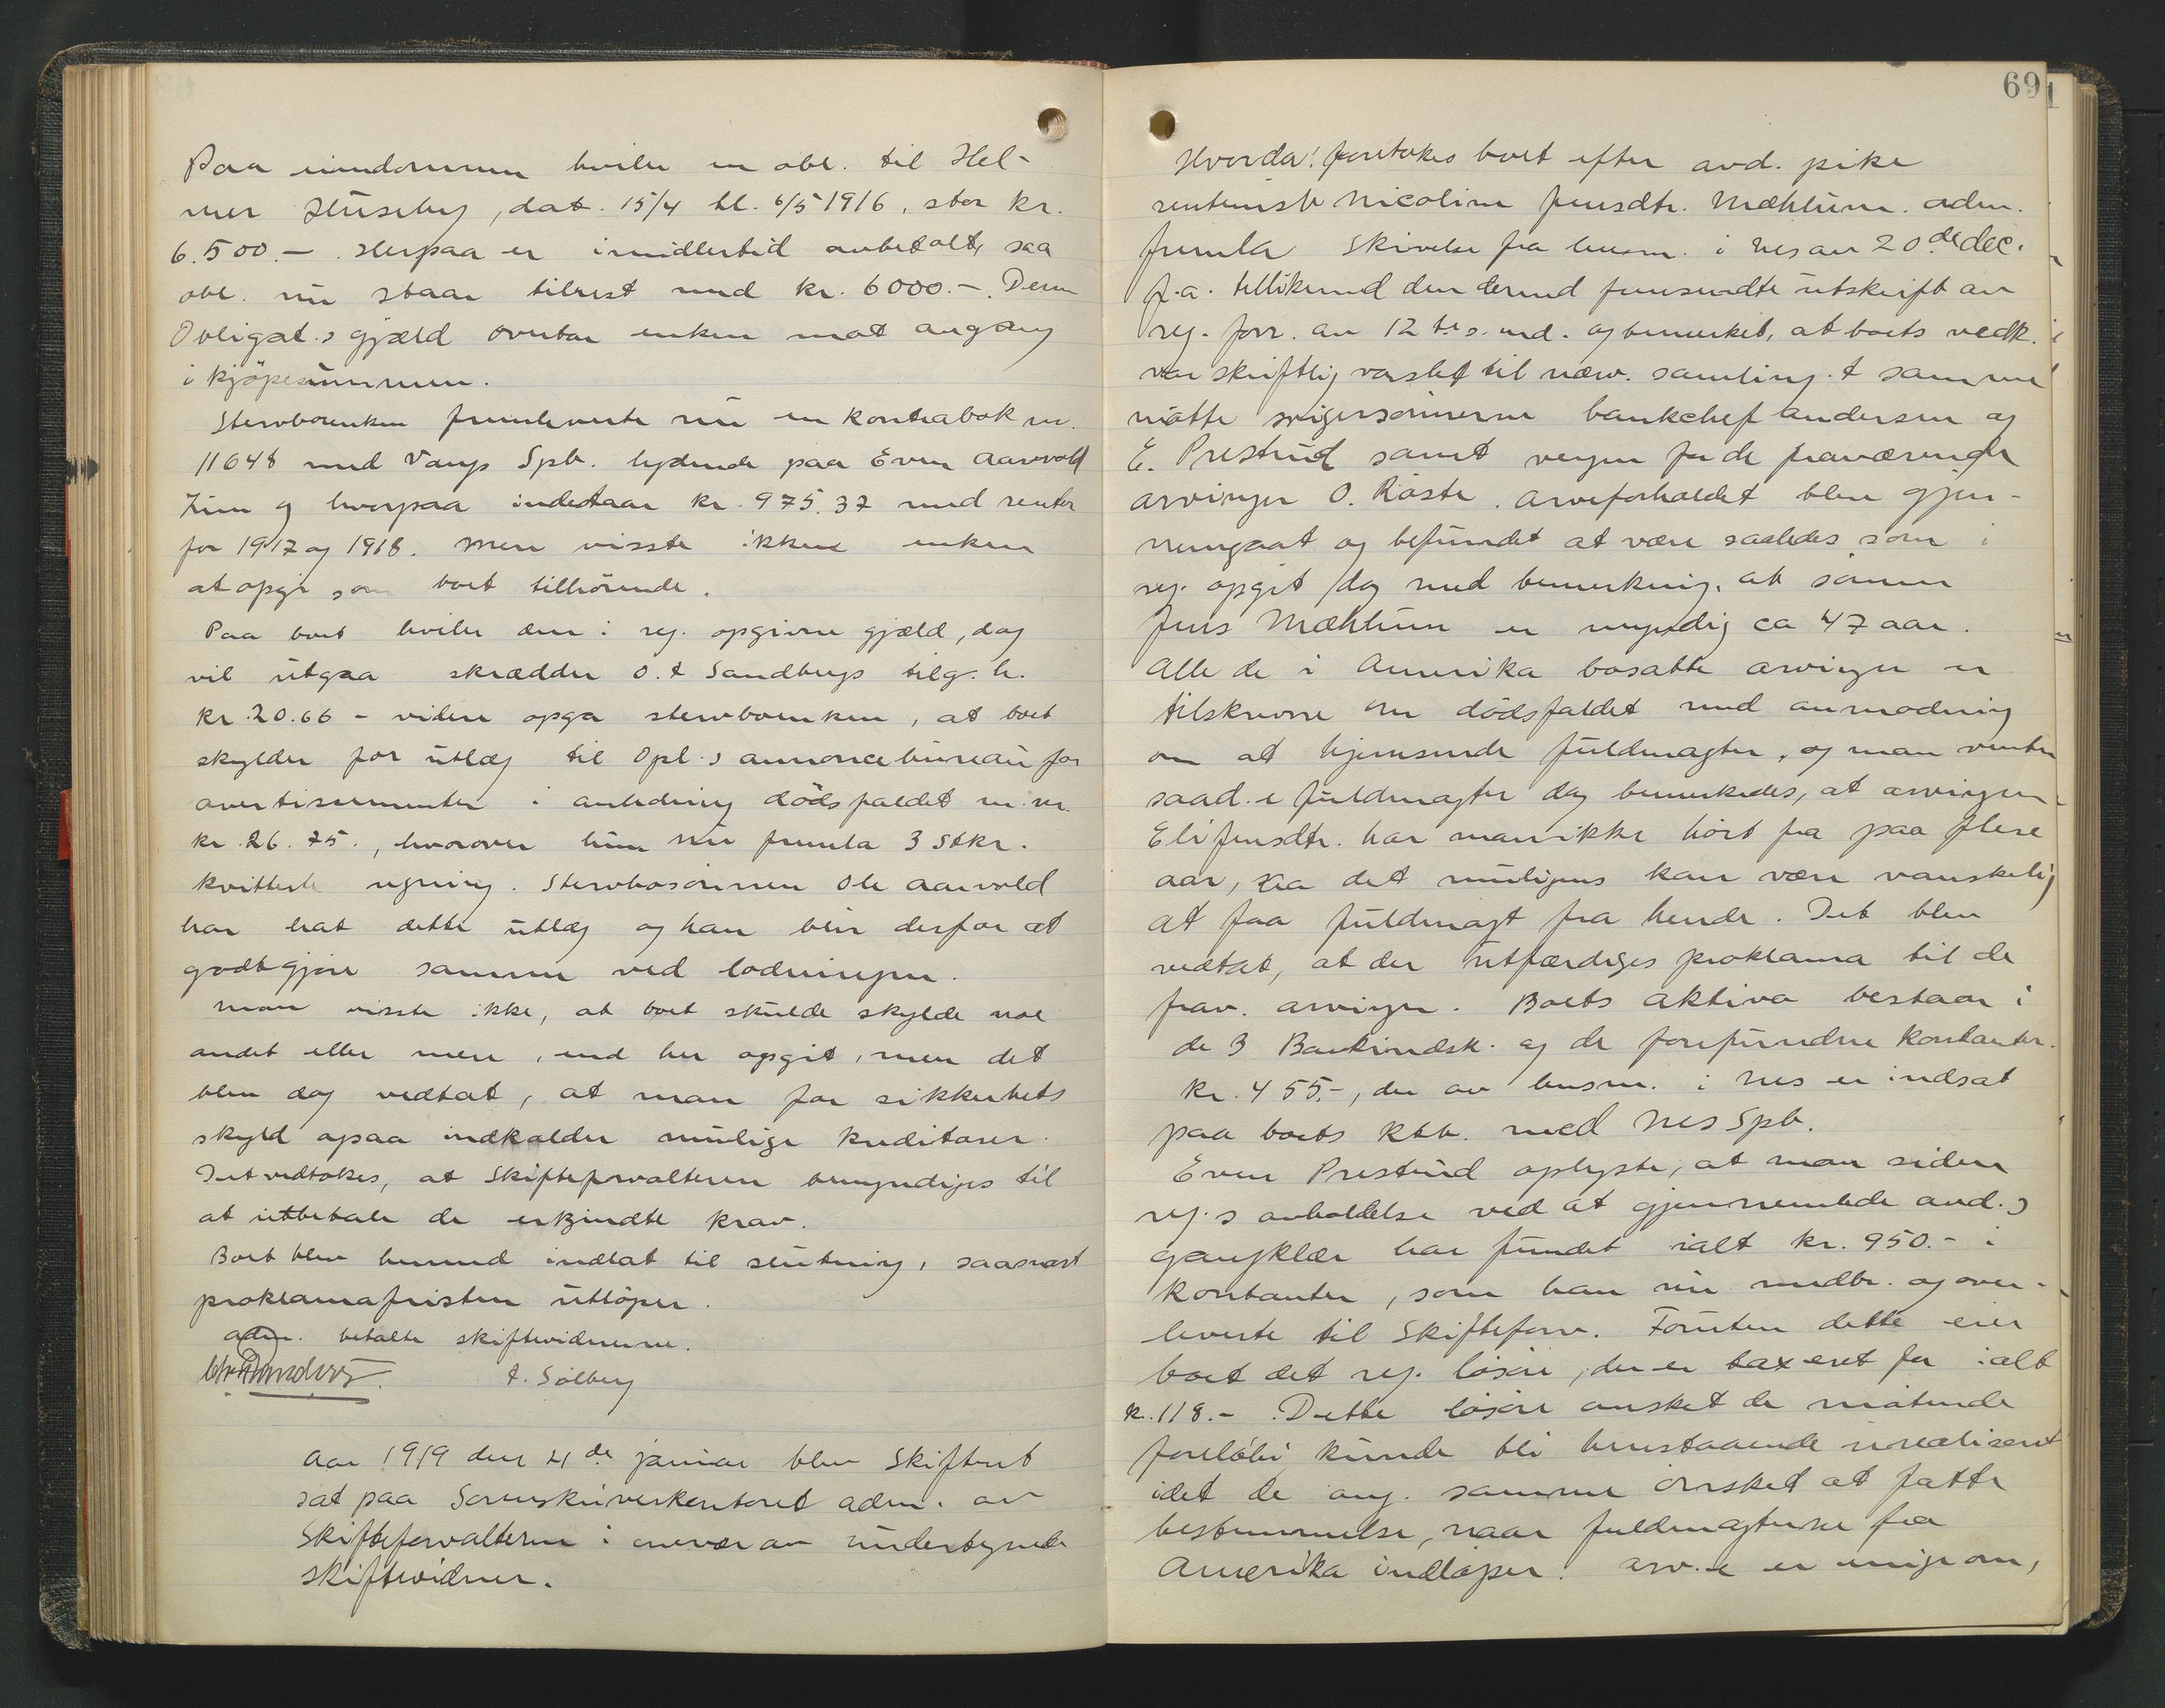 Paa eiendommen hviler en obl. til Hel-
mer Huseby, dat. 15/4 tl. 6/5 1916, stor kr.
6.500.-. Herpaa er imidlertid avbetalt, saa
obl. nu staar tilrest med kr. 6000.-. Denne
Obligat.s gjæld overtar enken mot avgang
i kjøpesummen.
Stervboenken fremleverte nu en kontrabok nr.
11648 med Vangs Spb. lydende paa Even Aarvold
Finn og hvorpaa indestaar kr. 975.37 med renter
for 1917 og 1918. Mere visste ikke enken
at opgi som boet tilhørende.
Paa boet hviler den i reg. opgivne gjæld, dog
vil utgaa skrædder O. t Sandbergs tilg. h.
kr. 20.66 - videre opga stervboenken, at boet
skylder for utlæg til Opl.s annoncebureau for
avertissementer i anledning dødsfaldet m.m.
kr. 26.75., hvorover hun nu fremla 3 stkr.
kvitterte regning. Stervbosønnen Ole Aarvold
har hat dette utlæg og han blir derfor at
godtgjøre samme ved lodningen.
Man visste ikke, at boet skulde skylde noe
andet eller mere, end her opgit, men det
blev dog vedtat, at man for sikkerhets
skyld ogsaa indkalder mulige kreditorer.
Det vedtokes, at Skifteforvalteren bemyndiges til
at utbetale de erkjendte krav.
Boet blev hermed indlat til slutning, saasnart
proklamafristen utløper.
Adm. betalte skiftevidnerne.
T. Solberg
Aar 1919 den 4de januar blev Skifteret
sat paa Sorenskriverkontoret adm. av
Skifteforvalteren i overvær av undertegnede
skiftevidner.
69
Hvorda: foretokes boet efter avd. pike
rentenist Nicoline Jensdtr. Mæhlum. Adm.
fremla Skrivelse fra lensm. i Nes av 20de dec.
f.a. tillikemed den dermed fremsendte utskrift av
reg. forr. av 12te s. md. og bemerket, at boets vedk.
var skriftlig varslet til nærv. samling. t samme
møtte svigersønnerne bankchef Andersen og
E. Prestrud samt vergen for de fraværende
arvinger O. Røste. Arveforholdet blev gjen-
nemgaat og befundet at være saaledes som i
reg. opgit dog med bemerkning, at sønnen
Jens Mæhlum er myndig ca 47 aar.
Alle de i Amerika bosatte arvinger er
tilskrevne om dødsfaldet med anmodning
om at hjemsende fuldmagter, og man venter
saad.e fuldmagter dog bemerkedes, at arvingen
Eli Jensdtr. har man ikke hørt fra paa flere
aar, saa det muligens kan være vanskelig
at faa fuldmagt fra hende. Det blev
vedtat, at der utfærdiges proklama til de
frav. arvinger. Boets aktiva bestaar i
de 3 Bankindsk. og de forefundne kontanter.
kr. 455.-, der av lensm. i Nes er indsat
paa boets ktb. med Nes Spb.
Even Prestrud oplyste, at man siden
reg.s avholdelse ved at gjennemlede avd.s
gangklær har fundet ialt kr. 950.- i
kontanter, som han nu medbr. og over-
leverte til Skifteforv. Foruten dette eier
boet det reg. løsøre, der er taxeret for ialt
kr. 118.-. Dette løsøre ønsket de møtende
foreløbi kunde bli henstaaende urealisert
idet de ang. samme ønsket at fatte
bestemmelse, naar fuldmagterne fra
Amerika indløper. Arv.e er enige om,